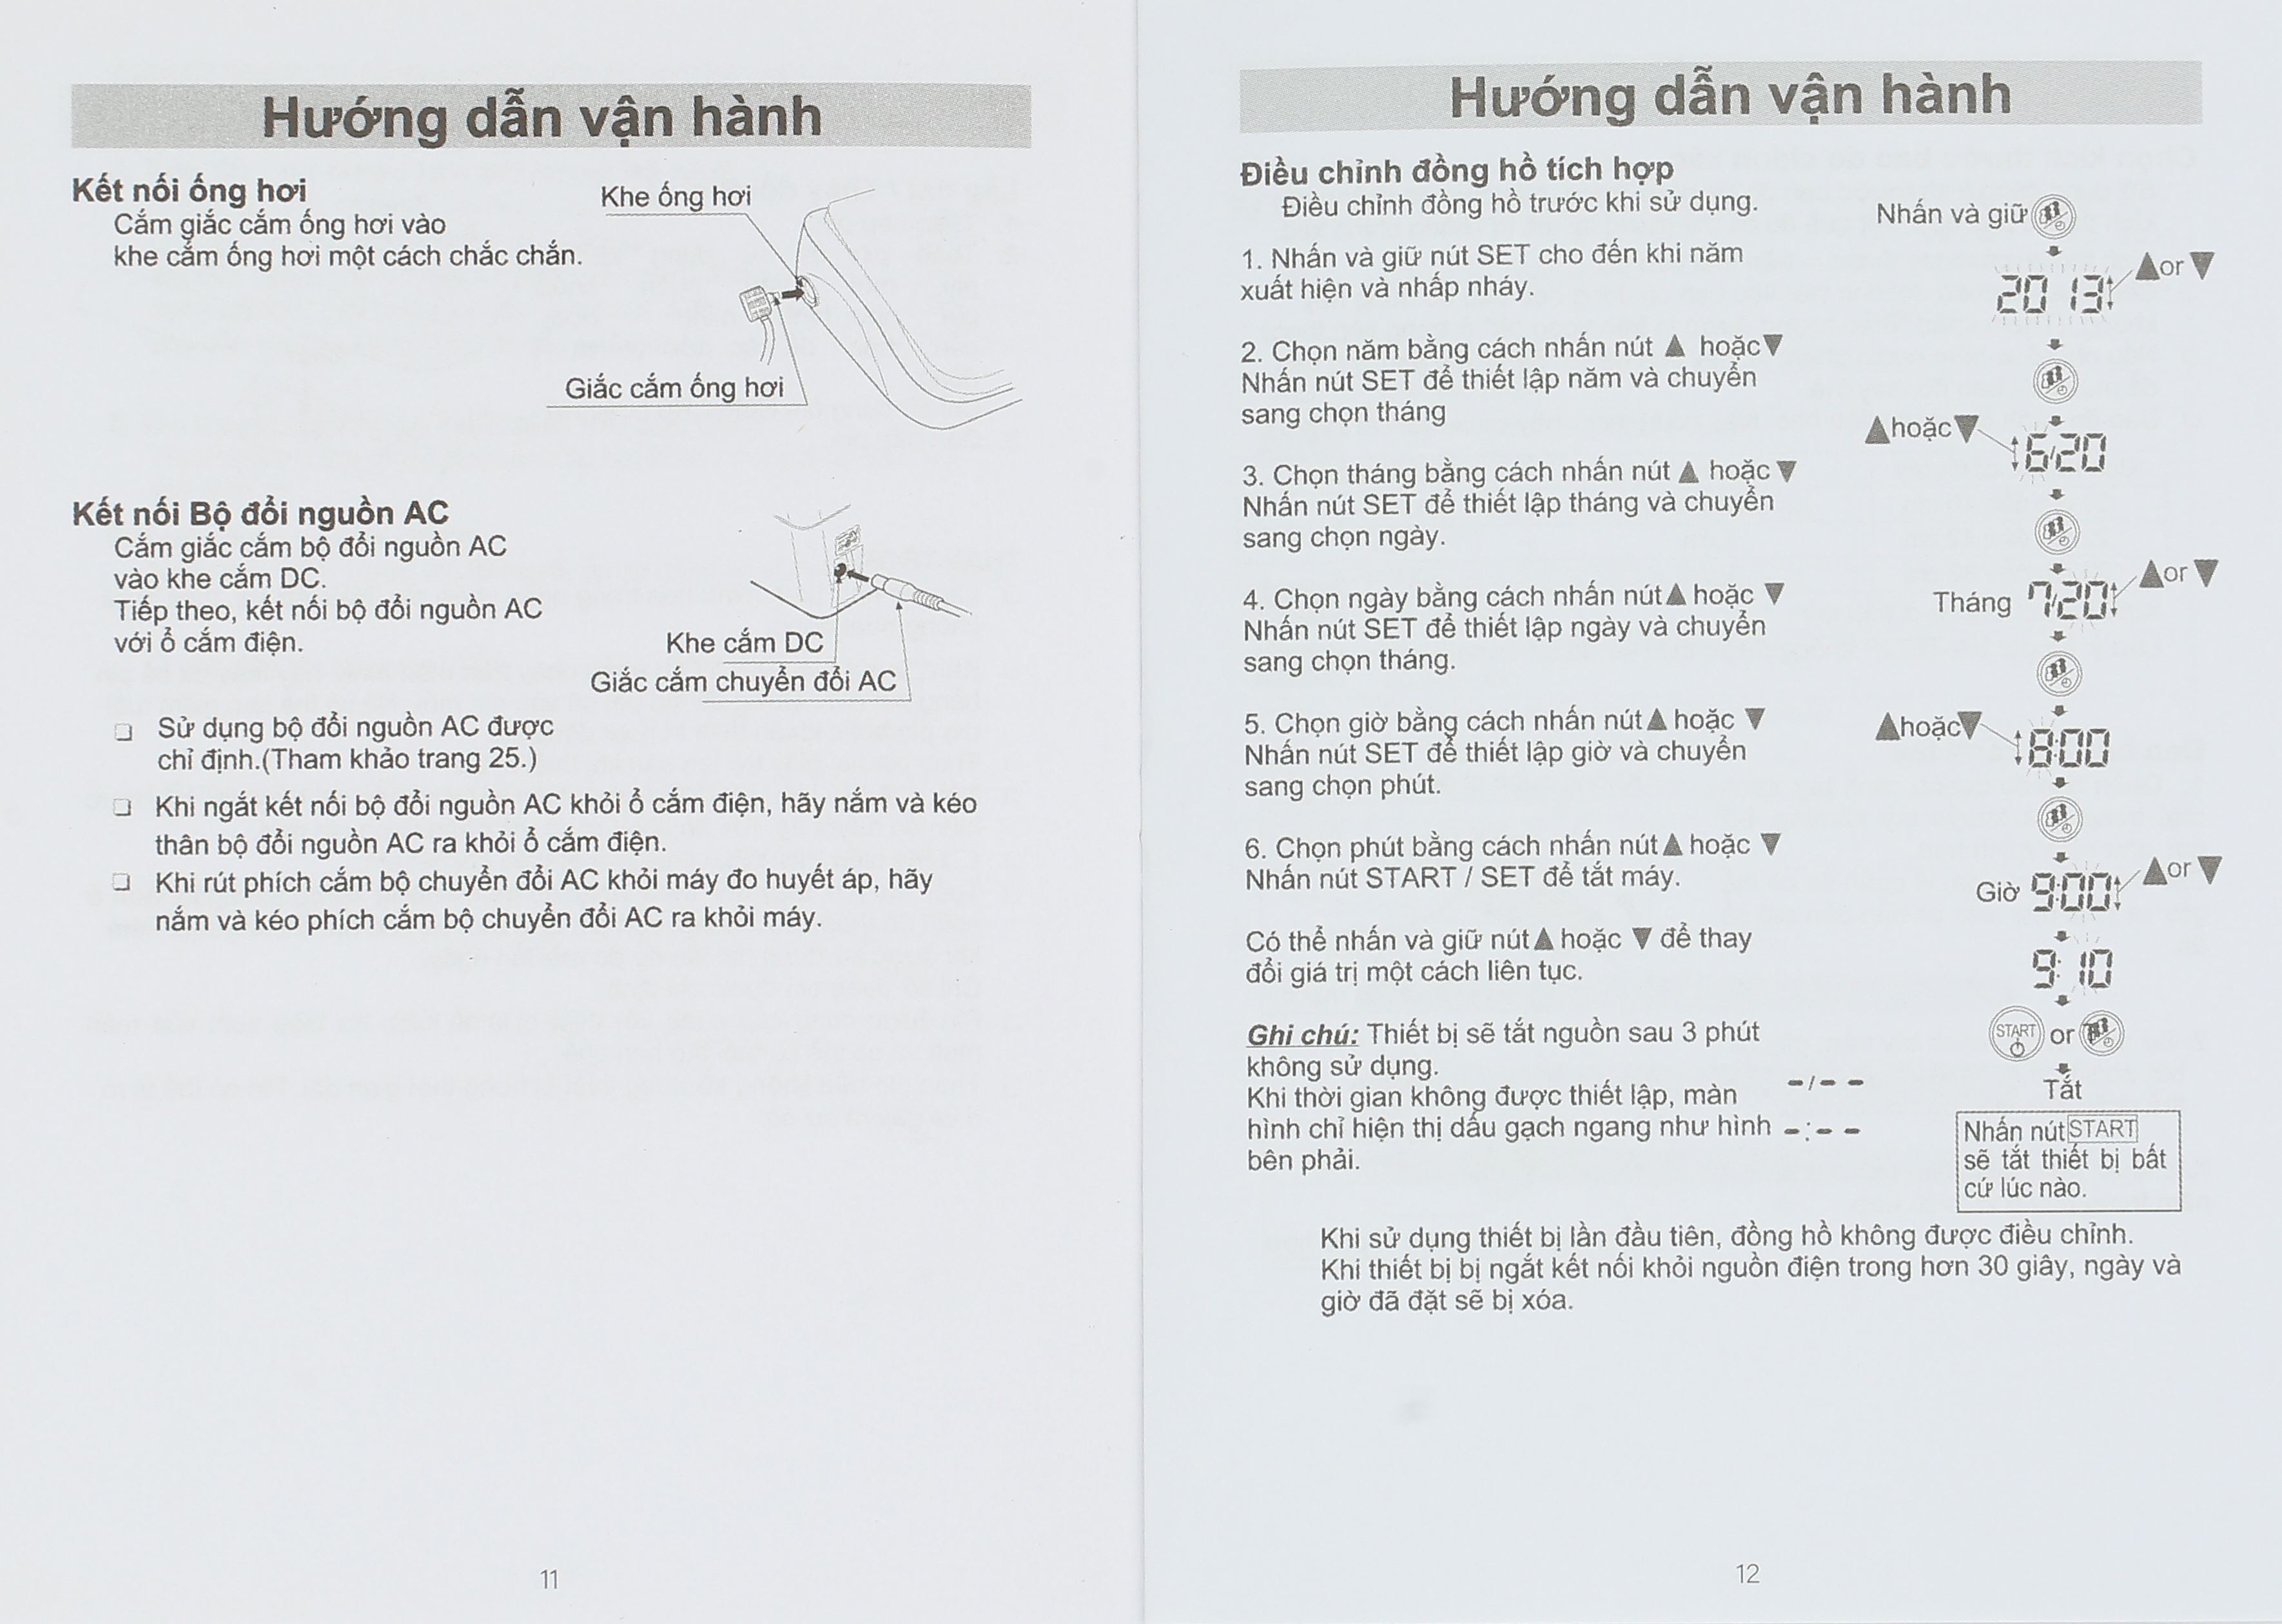 Hướng dẫn vận hành
Kết nối ống hơi
Cắm giắc cắm ống hơi vào
khe cắm ống hơi một cách chắc chắn.
Khe ống hơi
Giắc cắm ống hơi
Kết nối Bộ đổi nguồn AC
Cắm giắc cắm bộ đổi nguồn AC
vào khe cắm DC.
Tiếp theo, kết nối bộ đổi nguồn AC
với ổ cắm điện.
Khe cắm DC
Giắc cắm chuyển đổi AC
❏ Sử dụng bộ đổi nguồn AC được
chỉ định.(Tham khảo trang 25.)
❏ Khi ngắt kết nối bộ đổi nguồn AC khỏi ổ cắm điện, hãy nắm và kéo
thân bộ đổi nguồn AC ra khỏi ổ cắm điện.
❏ Khi rút phích cắm bộ chuyển đổi AC khỏi máy đo huyết áp, hãy
nắm và kéo phích cắm bộ chuyển đổi AC ra khỏi máy.
11
Hướng dẫn vận hành
Điều chỉnh đồng hồ tích hợp
Điều chỉnh đồng hồ trước khi sử dụng.
1. Nhấn và giữ nút SET cho đến khi năm
xuất hiện và nhấp nháy.
2. Chọn năm bằng cách nhấn nút ▲ hoặc▼
Nhấn nút SET để thiết lập năm và chuyển
sang chọn tháng
3. Chọn tháng bằng cách nhấn nút ▲ hoặc▼
Nhấn nút SET để thiết lập tháng và chuyển
sang chọn ngày.
4. Chọn ngày bằng cách nhấn nút▲ hoặc ▼
Nhấn nút SET để thiết lập ngày và chuyển
sang chọn tháng.
5. Chọn giờ bằng cách nhấn nút▲ hoặc ▼
Nhấn nút SET để thiết lập giờ và chuyển
sang chọn phút.
6. Chọn phút bằng cách nhấn nút▲ hoặc ▼
Nhấn nút START / SET để tắt máy.
Có thể nhấn và giữ nút▲ hoặc ▼ để thay
đổi giá trị một cách liên tục.
Ghi chú: Thiết bị sẽ tắt nguồn sau 3 phút
không sử dụng.
Khi thời gian không được thiết lập, màn
hình chỉ hiện thị dấu gạch ngang như hình
bên phải.
-/- -
-:- -
Nhấn và giữ
▲or ▼
2013
▲hoặc▼
6/20
▲or ▼
Tháng 7/20
▲hoặc▼
8:00
▲or ▼
Giờ 9:00
9:10
START or
Tắt
Nhấn nút START
sẽ tắt thiết bị bất
cứ lúc nào.
Khi sử dụng thiết bị lần đầu tiên, đồng hồ không được điều chỉnh.
Khi thiết bị bị ngắt kết nối khỏi nguồn điện trong hơn 30 giây, ngày và
giờ đã đặt sẽ bị xóa.
12